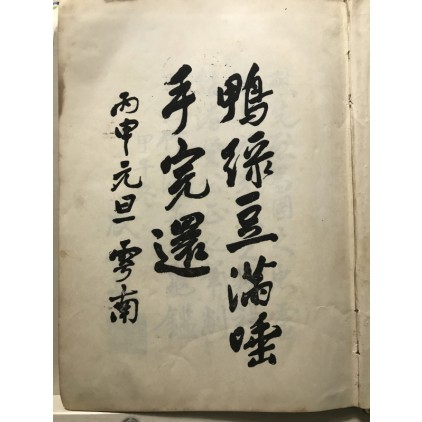 鴨綠豆滿唾
手完還
丙申元旦 雩南